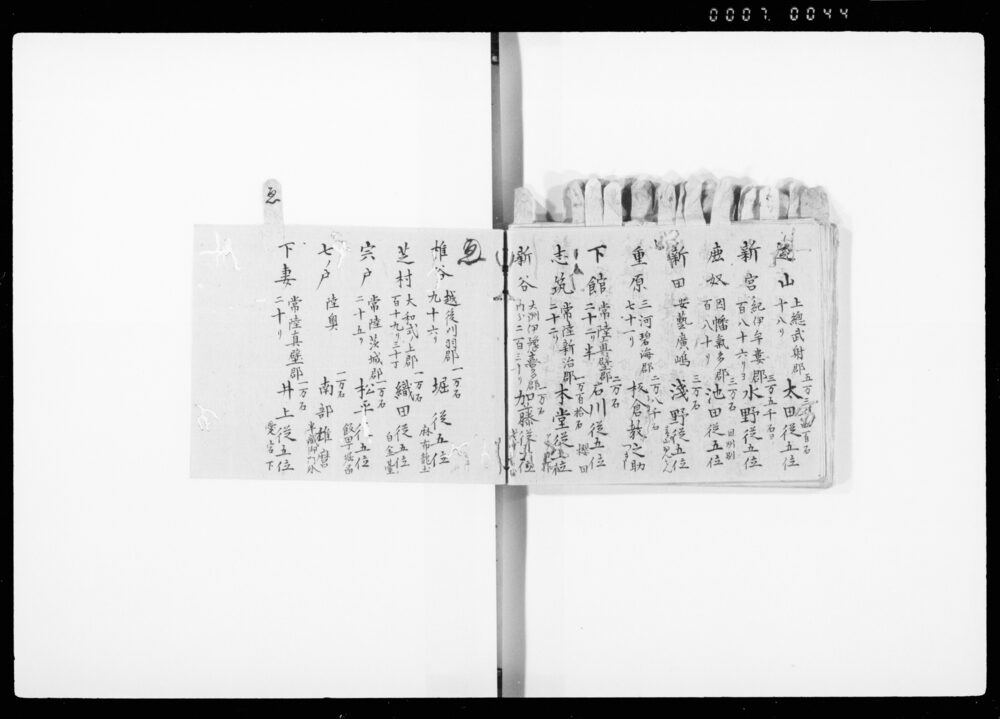 0007 0044
山 上總武射郡 太田從五位
十八り
新宮 紀伊牟婁郡 三万五千石 水野從五位
百八十六り
鹿奴 因幡氣多郡 三万石 池田從五位
百八十り
新田 安藝廣嶋 三万石 浅野從五位
重原 三河碧海郡 二万八千石 板倉教之助
七十一り
下館 常陸真壁郡 二万石 石川從五位
二十二り半 櫻田
志筑 常陸新治郡 一万百拾石 本堂從五位
二十二り
新谷 大洲伊豫喜多郡 一万石 加藤從五位
二百三り
ゑ
ゑ
椎谷 越後刈羽郡 一万石 堀從五位
九十六り 麻布龍土
芝村 大和式上郡 一万石 織田從五位
百十九り三十丁 白金臺
宍戸 常陸茨城郡 一万石 松平從五位
二十五り
七ノ戸 陸奥 一万石 南部雄麿
下妻 常陸真壁郡 一万石 井上從五位
二十り 愛宕下